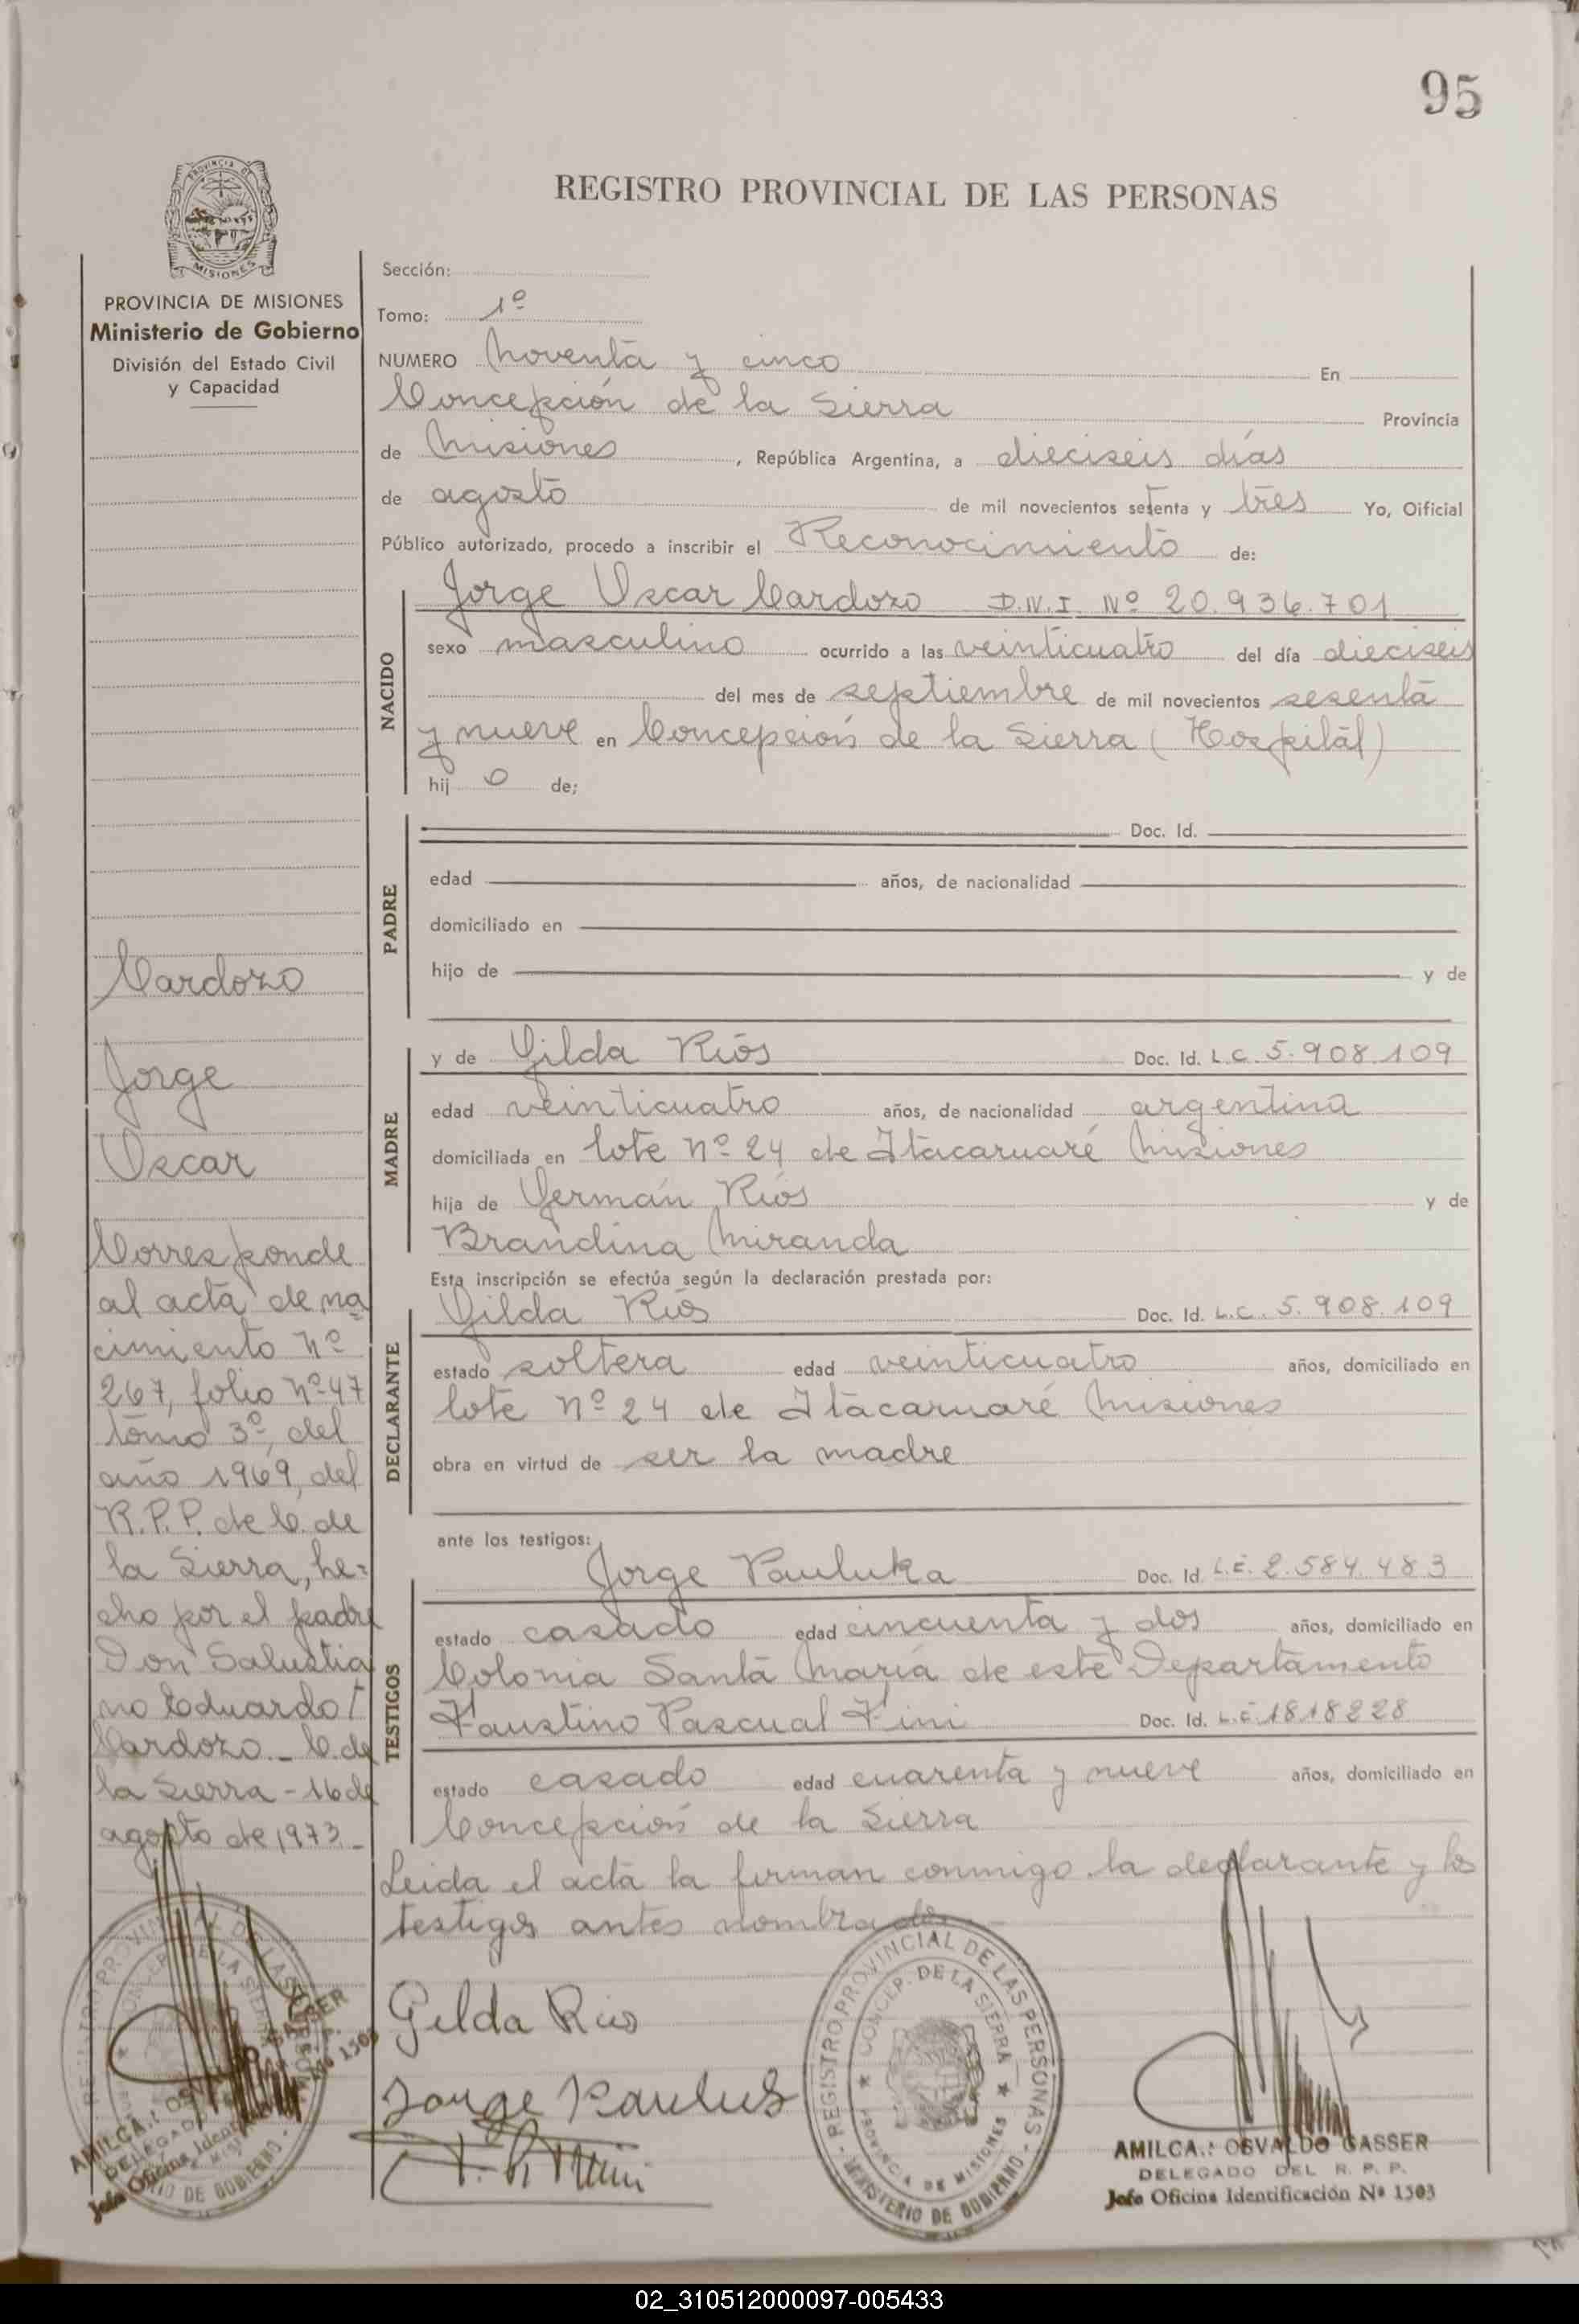 95
REGISTRO PROVINCIAL DE LAS PERSONAS
PROVINCIA DE MISIONES
MISIONES
PROVINCIA DE MISIONES
Ministerio de Gobierno
División del Estado Civil
y Capacidad
Sección:
Tomo: 1º
NUMERO Noventa y cinco En
Concepción de la Sierra Provincia
de Misiones, República Argentina, a dieciseis días
de agosto de mil novecientos setenta y tres Yo, Oificial
Público autorizado, procedo a inscribir el Reconocimiento de:
NACIDO
Jorge Oscar Cardozo D.N.I. Nº 20.936.701
sexo masculino ocurrido a las veinticuatro del día dieciseis
del mes de septiembre de mil novecientos sesenta
y nueve en Concepción de la Sierra (Hospital)
hij o de;
PADRE
Doc. Id.
edad años, de nacionalidad
domiciliado en
hijo de y de
MADRE
y de Gilda Ríos Doc. Id. L.C. 5.908.109
edad veinticuatro años, de nacionalidad argentina
domiciliada en lote nº 24 de Itacaruaré Misiones
hija de Germán Ríos y de
Brandina Miranda
Esta inscripción se efectúa según la declaración prestada por:
DECLARANTE
Gilda Ríos Doc. Id. L.C. 5.908.109
estado soltera edad veinticuatro años, domiciliado en
lote nº 24 de Itacaruaré Misiones
obra en virtud de ser la madre
ante los testigos:
TESTIGOS
Jorge Pauluka Doc. Id. L.E. 2.584.483
estado casado edad cincuenta y dos años, domiciliado en
Colonia Santa María de este Departamento
Faustino Pascual Fini Doc. Id. L.E. 1818228
estado casado edad cuarenta y nueve años, domiciliado en
Concepción de la Sierra
Leida el acta la firman conmigo la declarante y los
testigos antes nombrados
Cardozo
Jorge
Oscar
Corresponde
al acta de na
cimiento nº
267, folio nº 47
tomo 3º, del
año 1969, del
R.P.P. de C. de
la Sierra, he=
cho por el padre
Don Salustia
no Eduardo
Cardozo_ C. de
la Sierra - 16 de
agosto de 1973_
Gilda Rios
Jorge
REGISTRO PROVINCIAL DE LAS PERSONAS
CONCEP. DE LA SIERRA
PROVINCIA DE MISIONES
MINISTERIO DE GOBIERNO
AMILCA.: OSVALDO GASSER
DELEGADO DEL R. P. P.
Jefe Oficina Identificación Nº 1503
AMILCA.: OSVALDO GASSER
DELEGADO
Jefe Oficina Identificación Nº 1503
02_310512000097-005433